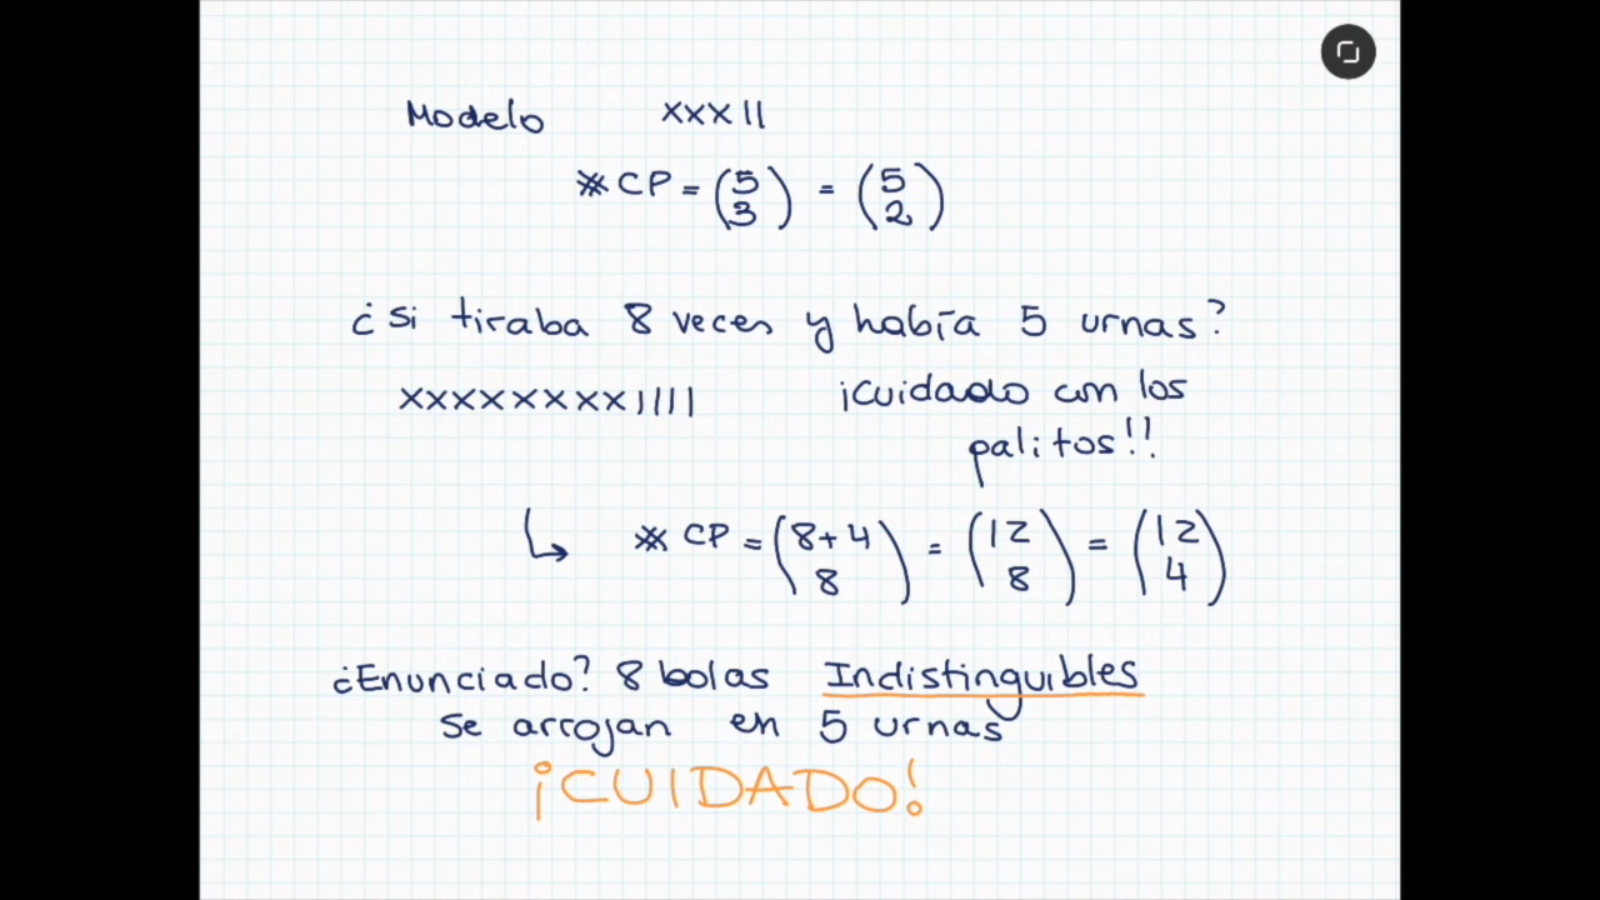 Modelo XXX||
#CP = (5 3) = (5 2)
¿Si tiraba 8 veces y había 5 urnas?
XXXXXXXX|||| ¡Cuidado con los
palitos!!
↳ # CP = (8+4 8) = (12 8) = (12 4)
¿Enunciado? 8 bolas Indistinguibles
Se arrojan en 5 urnas
¡CUIDADO!